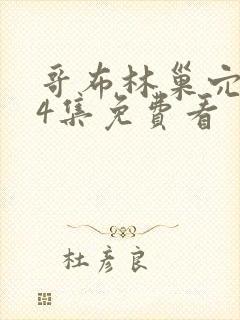 哥布林巢穴
4集免费看
杜彦良